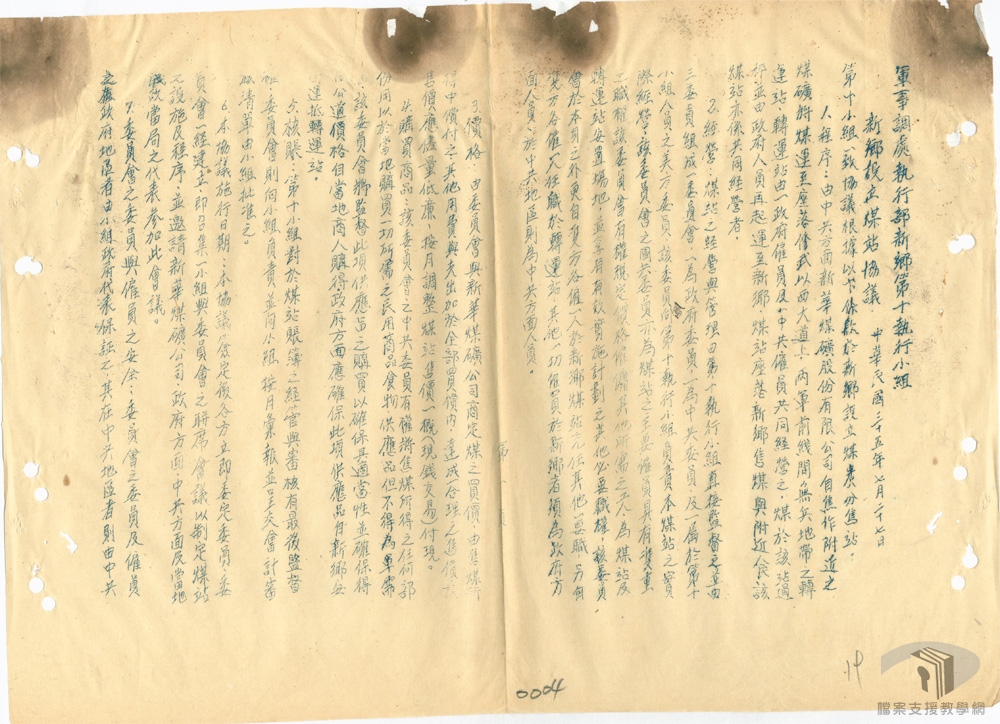 軍事調處執行部新鄉第十執行小組
新鄉設立煤站協議 中華民國三十五年七月二十七日
第十小組一致協議根據以下條款於新鄉設立煤炭分售站。
1.程序：由中共方面新華煤礦股份有限公司自焦作附近之
煤礦將煤運至座落修武以西大道上，兩軍前線間之無兵地帶之轉
運站，轉運站由一政府僱員及一中共僱員共同經營之，煤於該站過
秤並由政府人員再起運至新鄉，煤站座落新鄉售煤與附近人民該
煤站亦係共同經營者。
2.經營：煤站之經營與管理由第十執行小組直接監督之並由
三委員組成一委員會，一為政府委員，一為中共委員，及一屬於第十
小組人員之美方委員，該委員會向第十執行小組負責本煤站之實
際經營，該委員會之國共委員亦為煤站之主要僱員具有雙重
職權該委員會有權規定
轉運站安置場地，並具有有效實施計劃之其他必要職權，該委員
會於本身之外更自雙方各僱一人於新鄉煤站充任其他一要職，另自
雙方各僱一人任職於轉運站，其他一切僱員於新鄉者須為政府方
面人員，於中共地區則為中共方面人員。
3.價格 由委員會與新華煤礦公司商定煤之買價，由售煤所
得中償付之，其他用費與支出加於全部買價內，達成一合理之售價，該
售價應儘量低廉，按月調整煤站售價一概（現錢交易）付現。
4.購買商品：該委員會之中共委員有權將售煤所得之任何部
份用以於當地購買一切所需之民用商品食物供應品但不得為軍需
，該委員會將監督此項供應品之購買以確保其適當性並確保得
以公道價格自當地商人購得，政府方面應確保此項供應品自新鄉安
運抵轉運站。
5.核賬：第十小組對於煤站賬簿之經管與審核有最後監督
權，委員會則向小組負責並向小組按月彙報並呈交會計審
核清單由小組批准之。
6.本協議施行日期：本協議簽定後各方立即委定委員，委
員會一經建立，即召集一小組與委員會之聯席會議以制定煤站
之設施及程序，並邀請新華煤礦公司，政府方面，中共方面及當地
政當局之代表參加此會議。
7.委員會之委員與僱員之安全：委員會之委員及僱員
之在政府地區者由小組政府代表保証之其在中共地區者則由中共
0004
19
檔案支援教學網